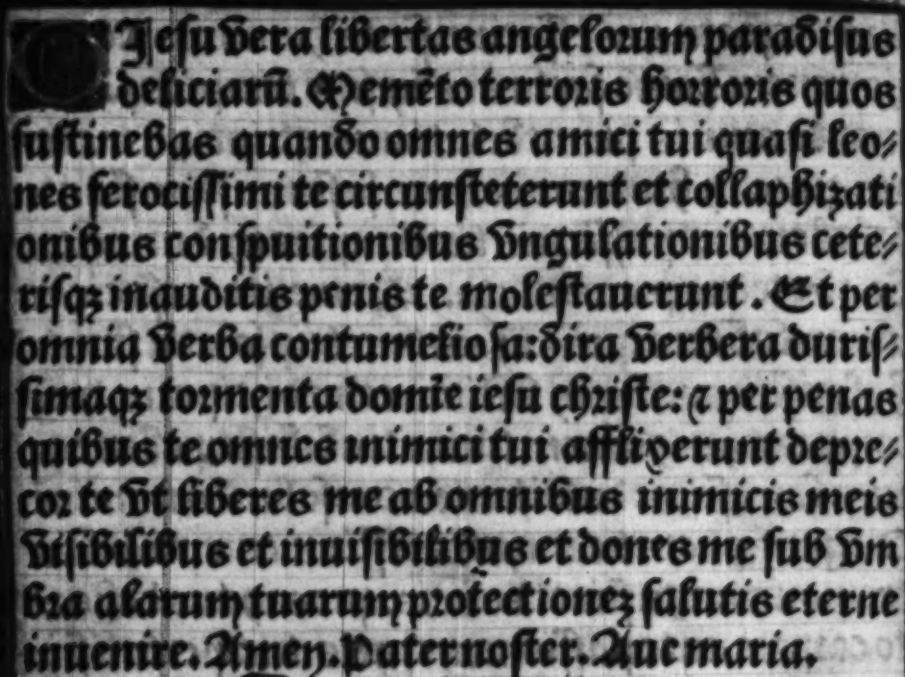 O Jesu vera libertas angelorum paradisus
deliciarū. Memēto terroris horroris quos
sustinebas quando omnes amici tui quasi leo⸗
nes ferocissimi te circunsteterunt et collaphizati
onibus conspuitionibus vngulationibus cete⸗
risqꝫ inauditis penis te molestauerunt. Et per
omnia verba contumeliosa: dira verbera duris⸗
simaqꝫ tormenta domīe iesu christe: ⁊ per penas
quibus te omnes inimici tui afflixerunt depre⸗
cor te vt liberes me ab omnibus inimicis meis
visibilibus et inuisibilibus et dones me sub vm
bra alarum tuarum protectioneꝫ salutis eterne
inuenire. Amen. Pater noster. Aue maria.